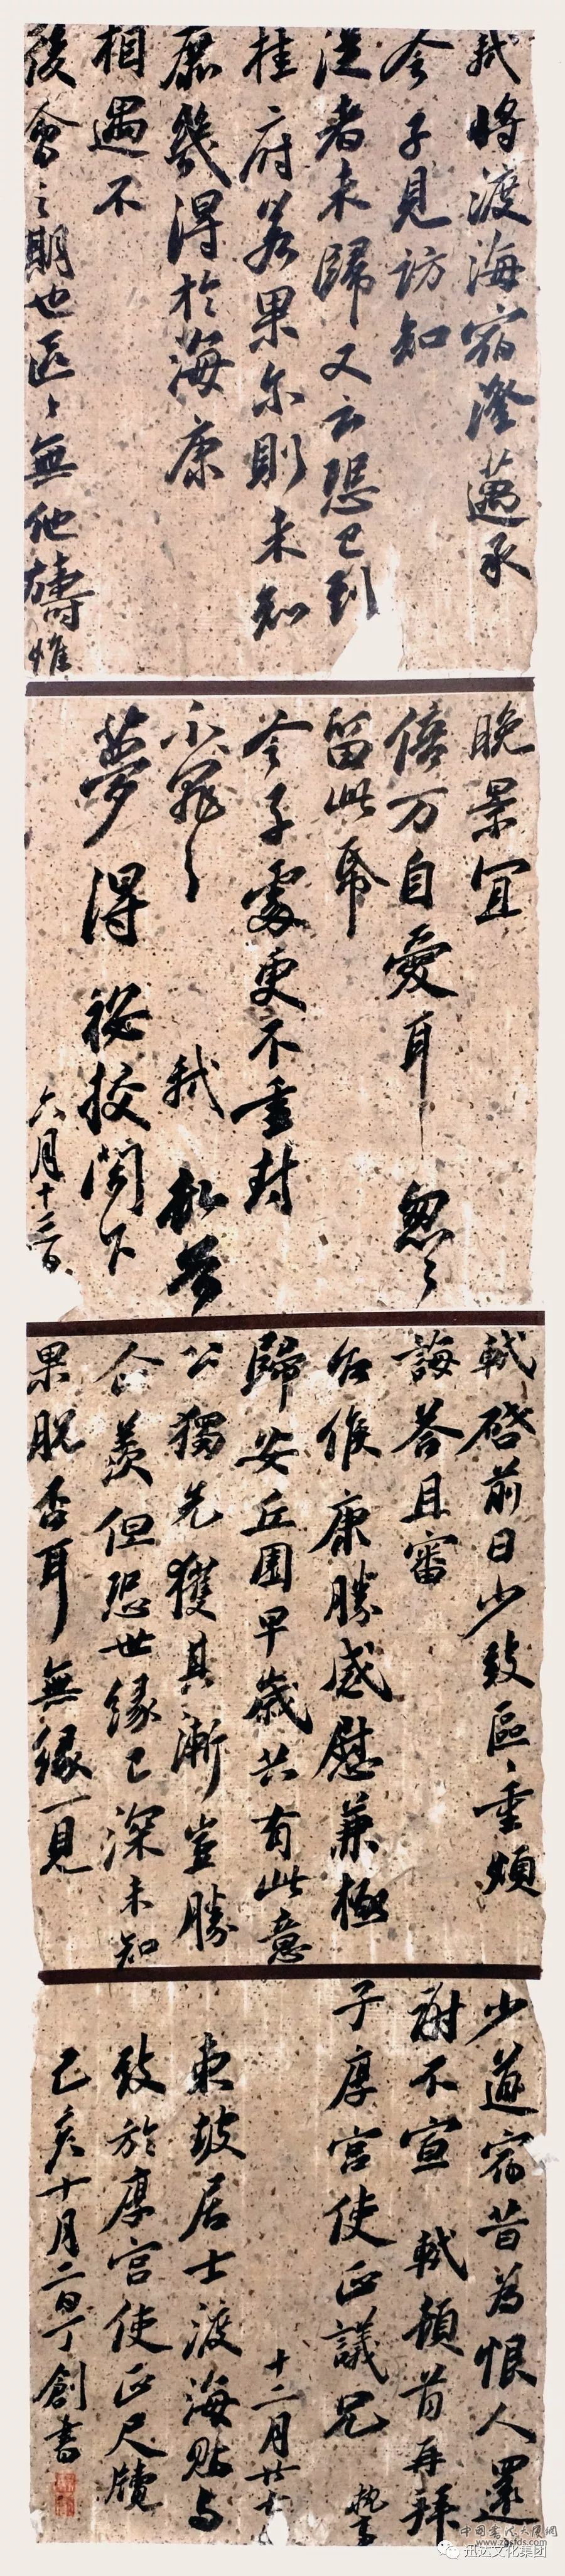 軾將渡海宿澄邁承
令子見訪知
從者未歸又云恐已到
桂府若果尔則未知
庶幾得於海康
相遇不
後會之期也區々無他禱惟
晚景宜
倍万自愛耳忽々
留此帋
令子處更不重封
不罪々
軾頓首
夢得祕校閣下
六月十三日
軾啓前日少致區々重煩
誨答且審
台候康勝感慰兼極
歸安丘園早歲共有此意
公獨先獲其漸豈勝
企羨但恐世緣已深未知
果脫否耳無緣一見
少道宿昔為恨人還
謝不宣軾頓首再拜
子厚宮使正議兄
執事
十二月廿七日
東坡居士渡海貼与
致於厚宮使正尺牘
己亥十月二日丁創書
中国书法大侠网
迅达文化集团